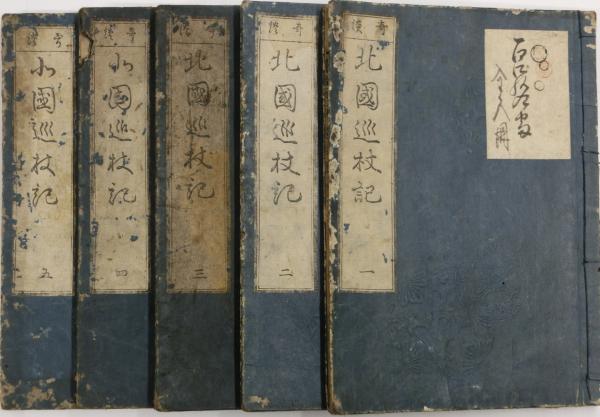 奇談
北國巡杖記
一
奇談
北國巡杖記
二
奇談
北國巡杖記
三
奇談
北國巡杖記
四
奇談
北國巡杖記
五